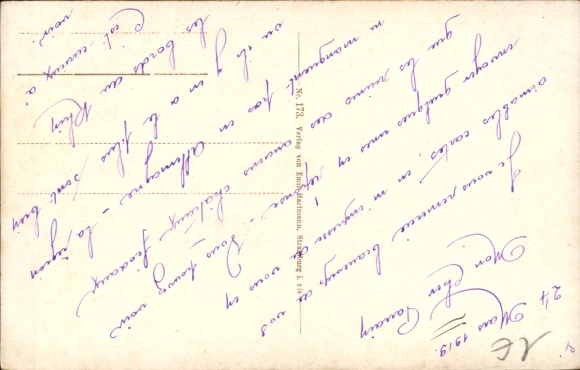 24 Mars 1919.
Mon Cher Parrain
Je vous remercie beaucoup de vos
aimables cartes, je m'empresse de vous en
envoyer quelques unes en réponse. Vous pouvez voir
que les ruines des anciens châteaux féodaux
ne manquent pas en Allemagne - la région
où il y en a le plus sont bien
les bords du Rhin
C'est curieux à
voir.
Nr. 173. Verlag von Emil Hartmann, Strassburg i. Els